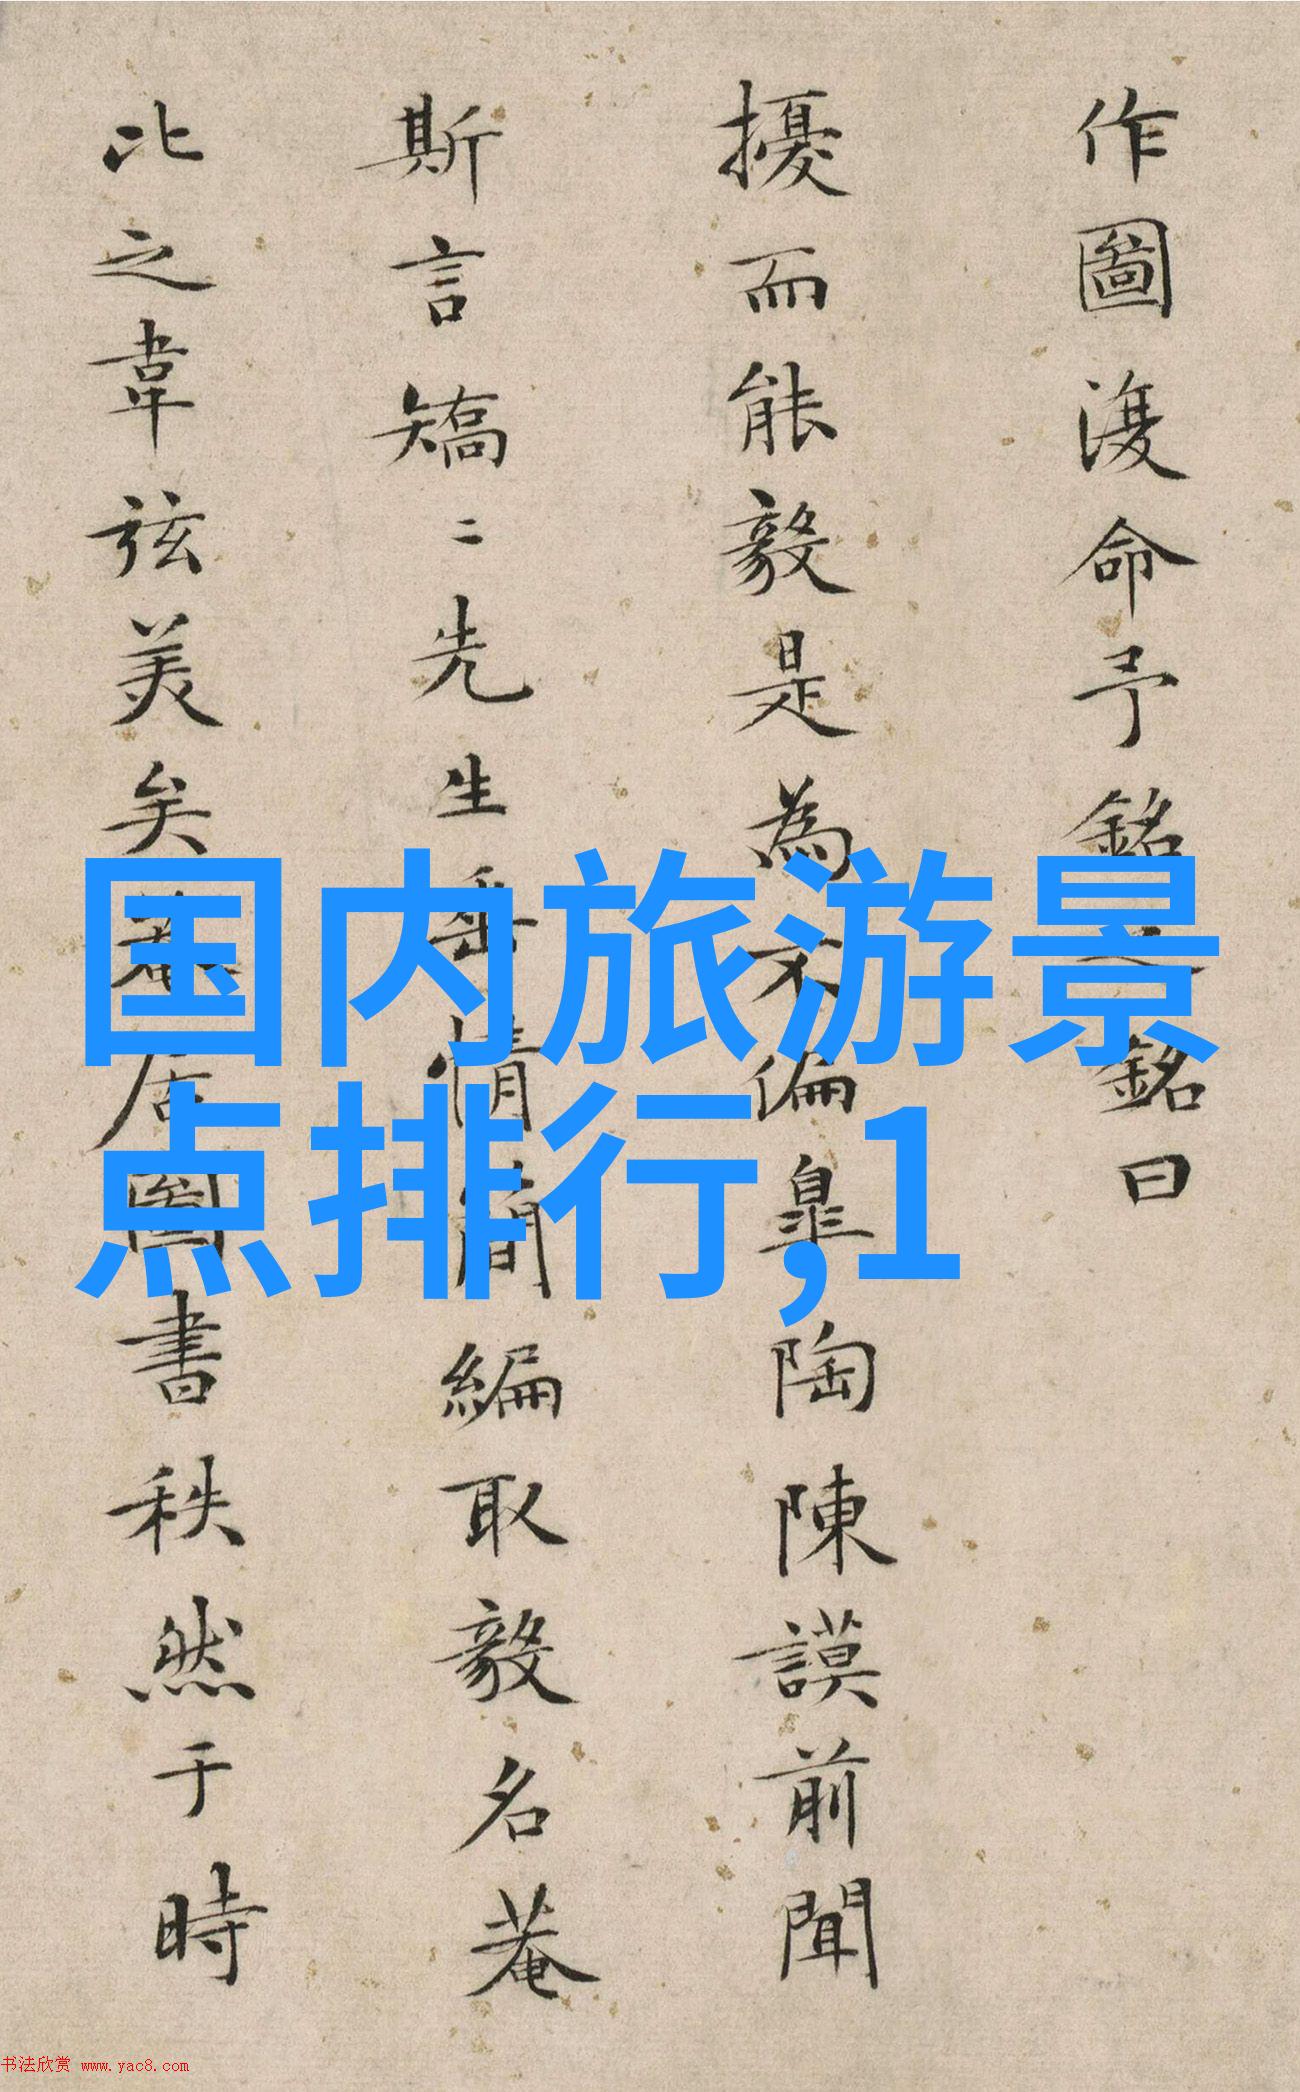 作圖復命予銘之銘曰
擾而能毅是為不偏臯陶陳謨前聞
斯言矯二先生岳情簡編取毅名菴
比之韋弦美矣菴居圖書秩然于時
国内旅游景
点排行,1
书法欣赏 www.yac8.com